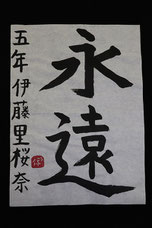 永遠
五年伊藤里桜奈